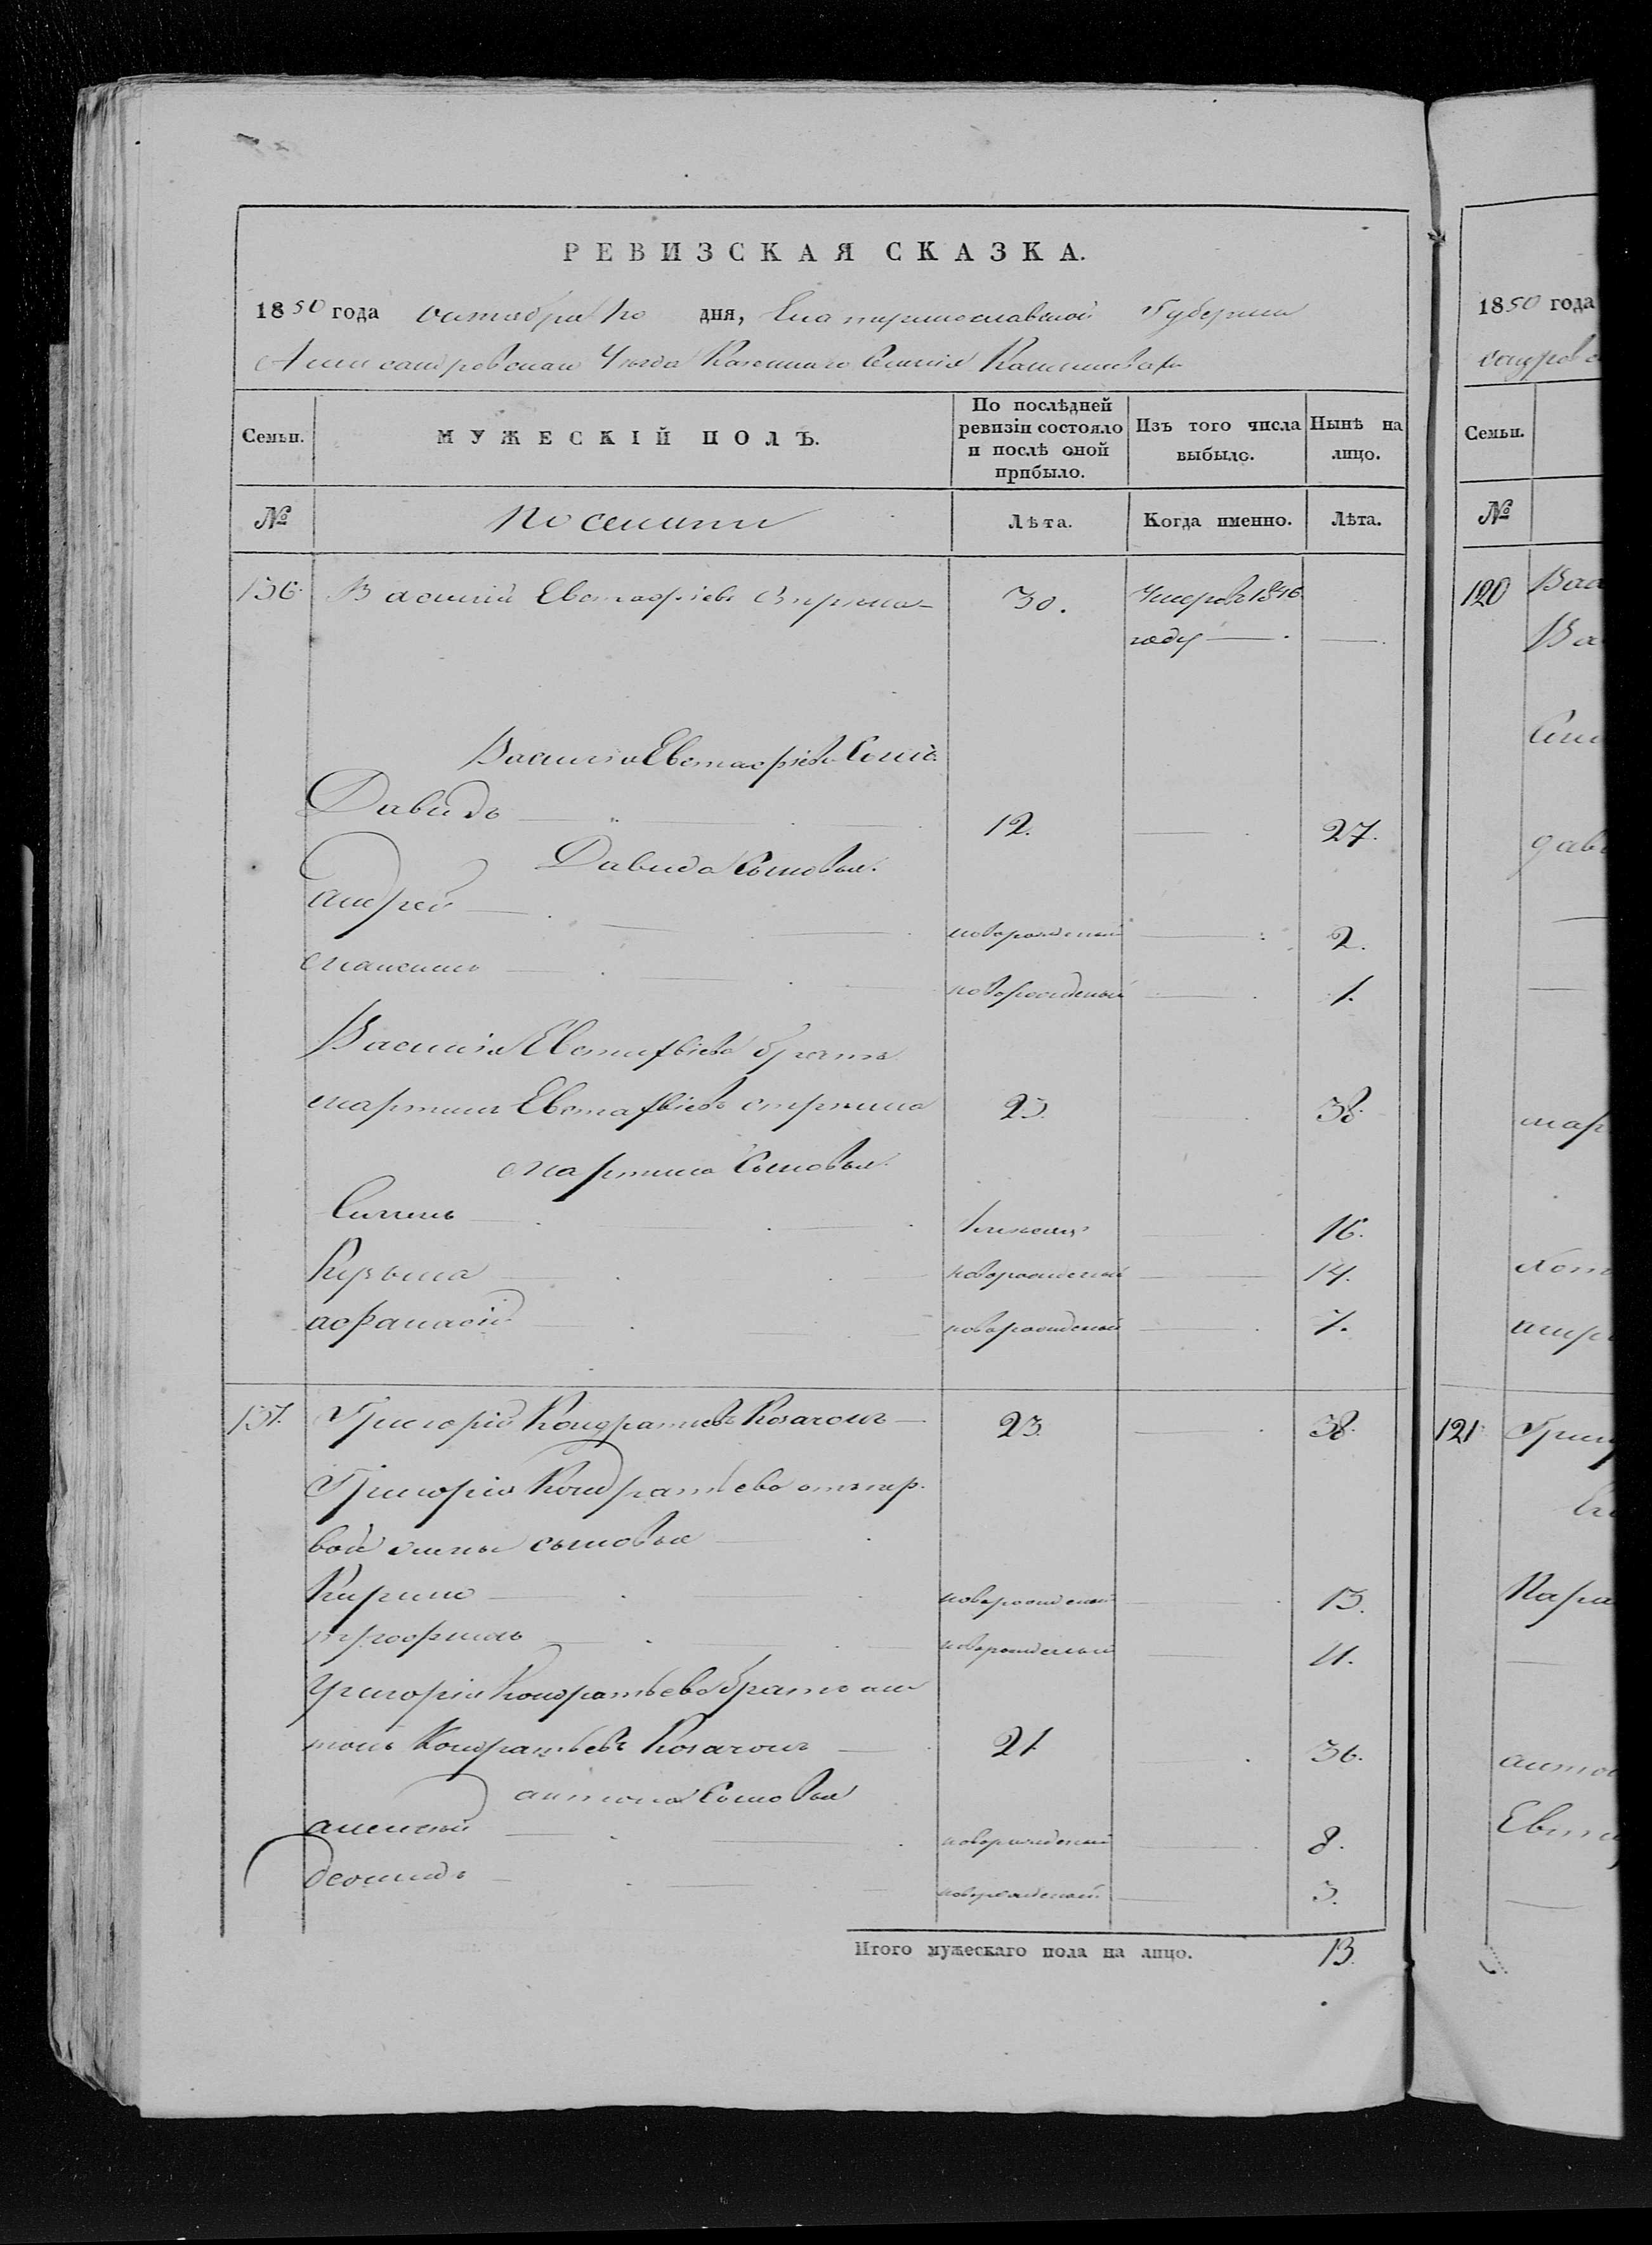 РЕВИЗСКАЯ СКАЗКА.
1850 года октября дня, Екатеринославской Губернии
Александровскаго Уѣзда Казеннаго Селенія
Семьи. МУЖЕСКІЙ ПОЛЪ. По послѣдней ревизіи состояло и послѣ оной прибыло. Изъ того числа выбыло. Нынѣ на лицо.
№ Лѣта. Когда именно. Лѣта.
136. Василій Евстафіевъ 30. Умеръ в 1846
году
Василія Евстафіева Сынъ
Давидъ 12. 27.
Давида Сыновья.
андрей новорожденный 2.
максимъ новорожденный 1.
Василія Евстафіева братъ
мартинъ Евстафіевъ 23. 38.
мартина Сыновья.
Семенъ 16.
Кузьма новорожденный 14.
афанасій новорожденный 7.
137. Григорій Кондратьевъ Козачокъ 23. 38.
Григорія Кондратьева отъ пер-
вой жены сыновья
Кирило новорожденный 13.
трофимъ новорожденный 11.
Григорія Кондратьева братъ ан
тонъ Кондратьевъ Козачокъ 21. 36.
антона Сыновья
алексей новорожденный 8.
леонидъ новорожденный 3.
Итого мужескаго пола на лицо. 13.
1850 года
Семьи.
№
120
121